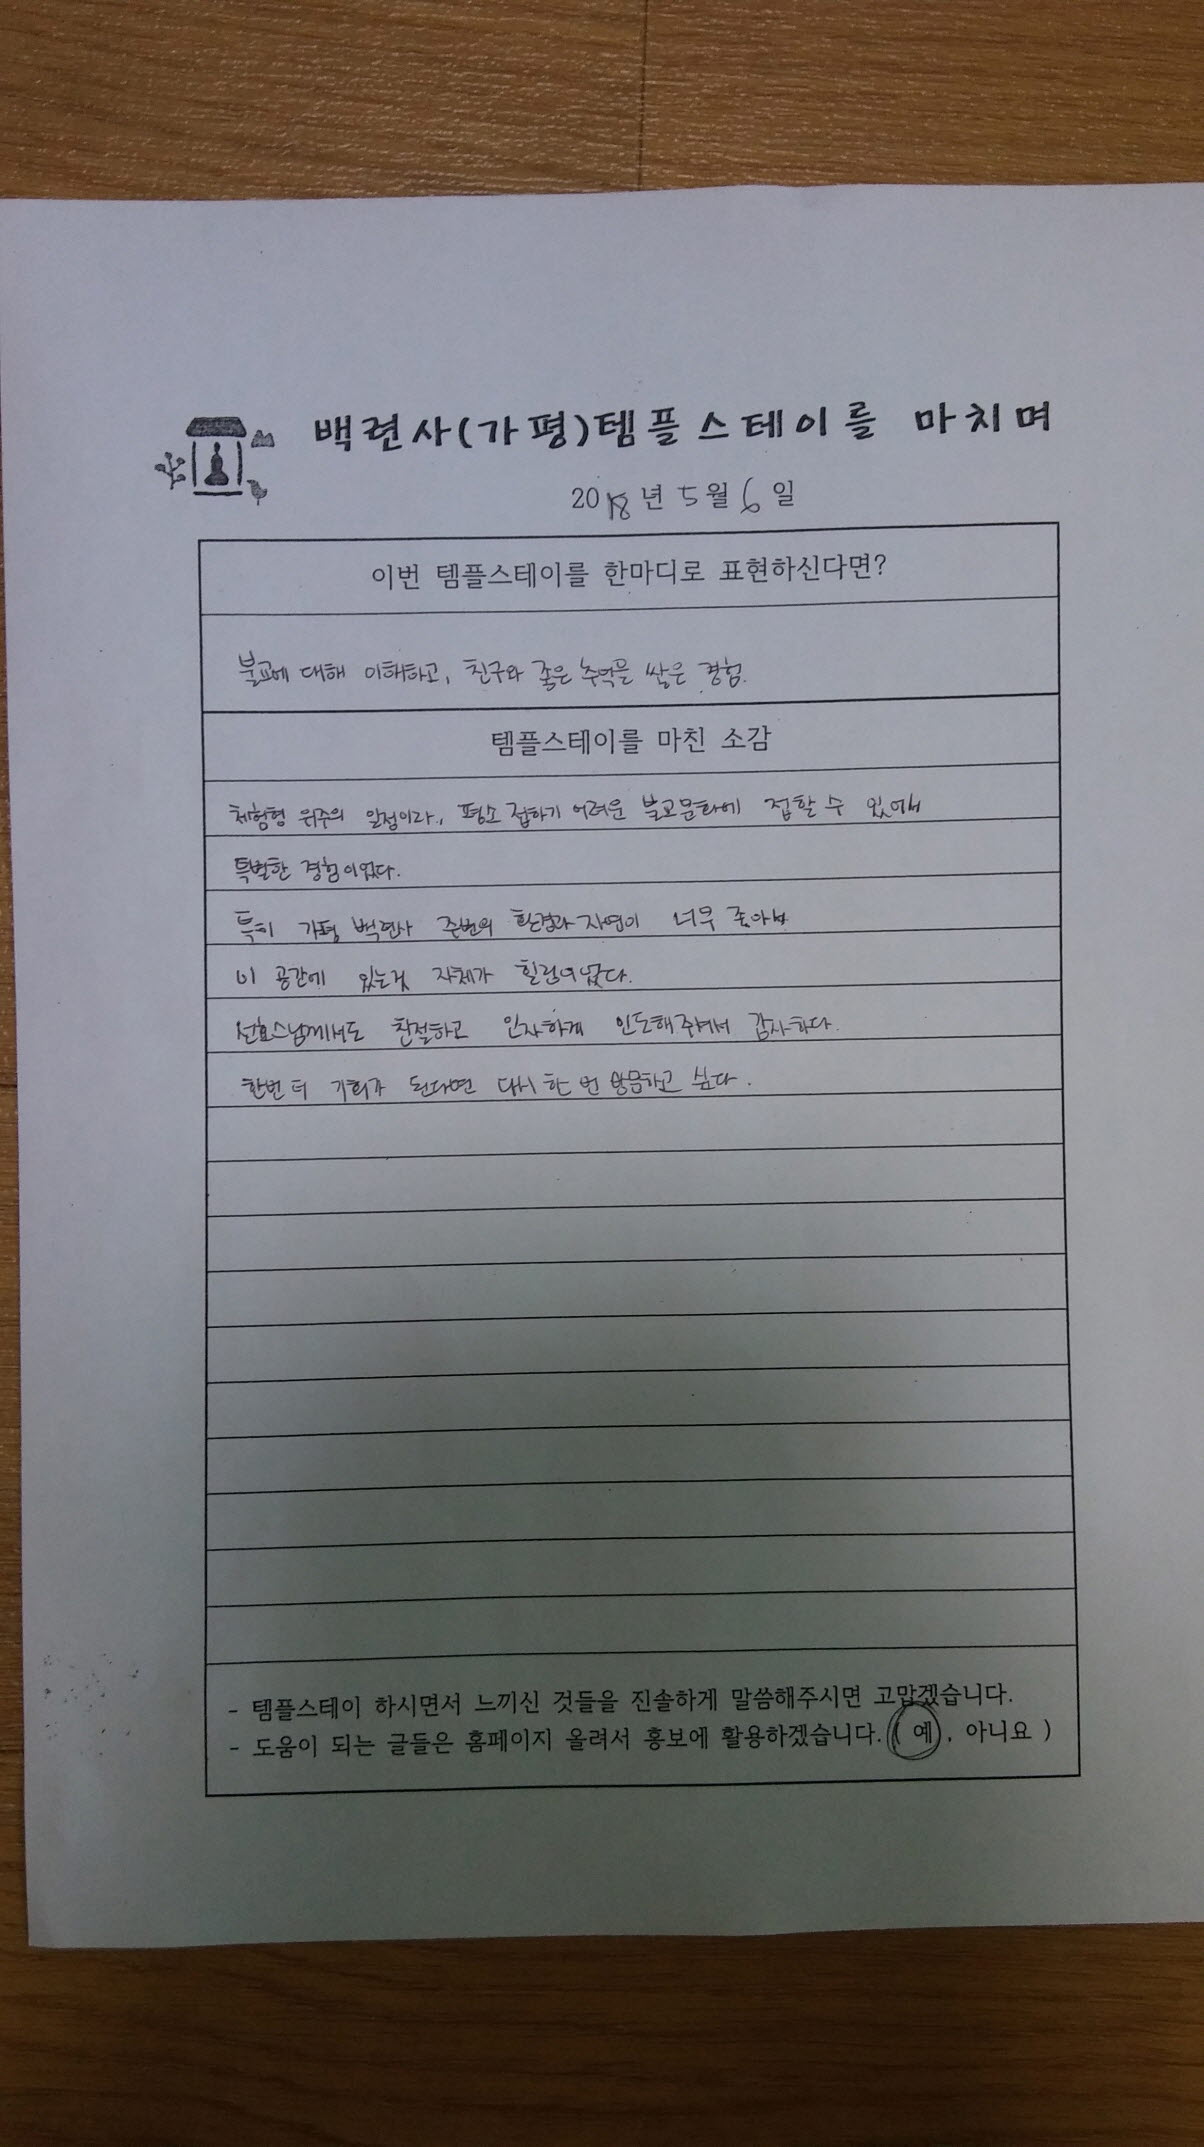 백련사(가평)템플스테이를 마치며
2018년 5월 6일
이번 템플스테이를 한마디로 표현하신다면?
불교에 대해 이해하고, 친구와 좋은 추억을 쌓은 경험.
템플스테이를 마친 소감
체험형 위주의 일정이라, 평소 접하기 어려운 불교문화에 접할 수 있어서
특별한 경험이었다.
특히 가평 백련사 주변의 환경과 자연이 너무 좋아서
이 공간에 있는것 자체가 힐링이었다.
선효스님께서도 친절하고 인자하게 인도해주셔서 감사하다.
한번 더 기회가 된다면 다시 한 번 방문하고 싶다.
- 템플스테이 하시면서 느끼신 것들을 진솔하게 말씀해주시면 고맙겠습니다.
- 도움이 되는 글들은 홈페이지 올려서 홍보에 활용하겠습니다. ( 예 , 아니요 )